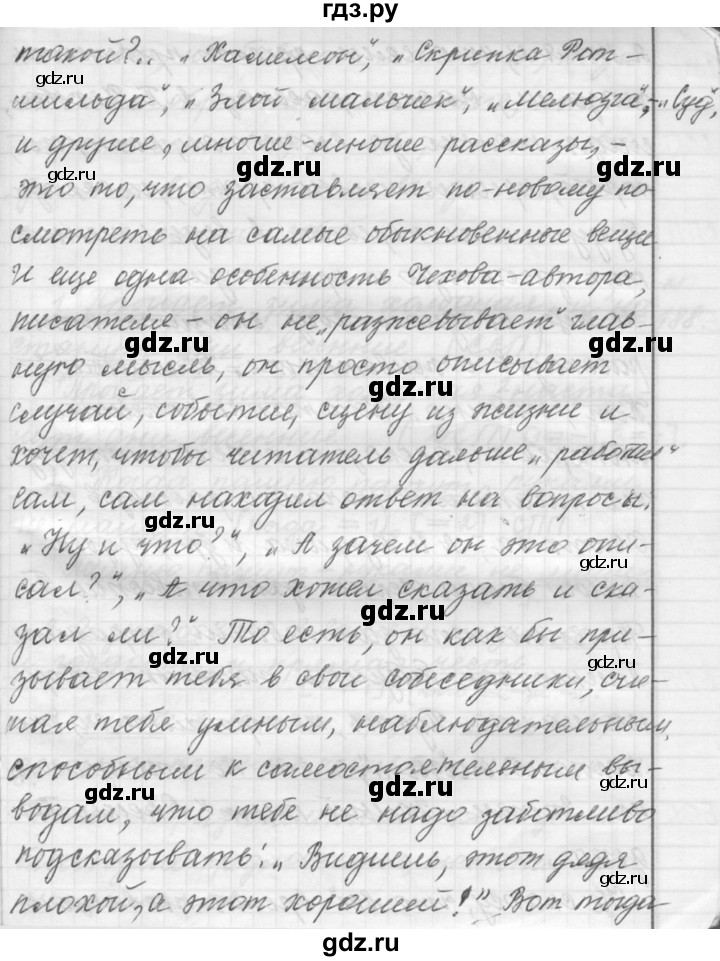 гдз.ру
такой?.. „Хамелеон", „Скрипка Рот-
шильда", „Злой мальчик", „Мелюзга", „Суд",
и другие, многие-многие рассказы, -
gdz.ru
gdz.ru
это то, что заставляет по-новому по
gdz.ru
gdz.ru
смотреть на самые обыкновенные вещи
И еще одна особенность Чехова-автора,
писателя - он не „разжевывает" глав-
gdz.ru
gdz.ru
ную мысль, он просто описывает
gdz.ru
случай, событие, сцену из жизни и
gdz.ru
хочет, чтобы читатель дальше „работал"
сам, сам находил ответ на вопросы:
gdz.ru
„Ну и что?", „А зачем он это опи-
gdz.ru
сал?", „А что хотел сказать и ска-
gdz.ru
зал ли?" То есть, он как бы при-
gdz.ru
зывает тебя в свои собеседники, счи-
тая тебя умным, наблюдательным,
способным к самостоятельным вы-
gdz.ru
gdz.ru
gdz.ru
водам, что тебе не надо заботливо
подсказывать: „Видишь, этот дядя
плохой, а этот хороший!" Вот тогда
gdz.ru
gdz.ru